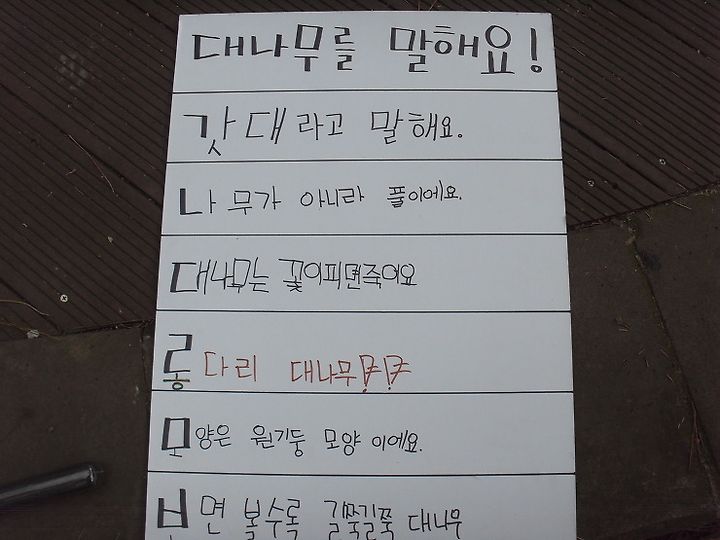 대나무를 말해요!
갓대라고 말해요.
나무가 아니라 풀이에요.
대나무는 꽃이피면죽어요
롱다리 대나무
모양은 원기둥 모양 이에요.
보면 볼수록 길쭉길쭉 대나무